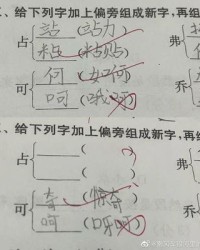 、给下列字加上偏旁组成新字,再组
占 站(站力)
粘(粘贴)
弗
可 何(如何)
呵(哦呵)
乔
、给下列字加上偏旁组成新字,再组
占 ( )
( )
弗
可 奇(惊奇)
呵(呵)
乔